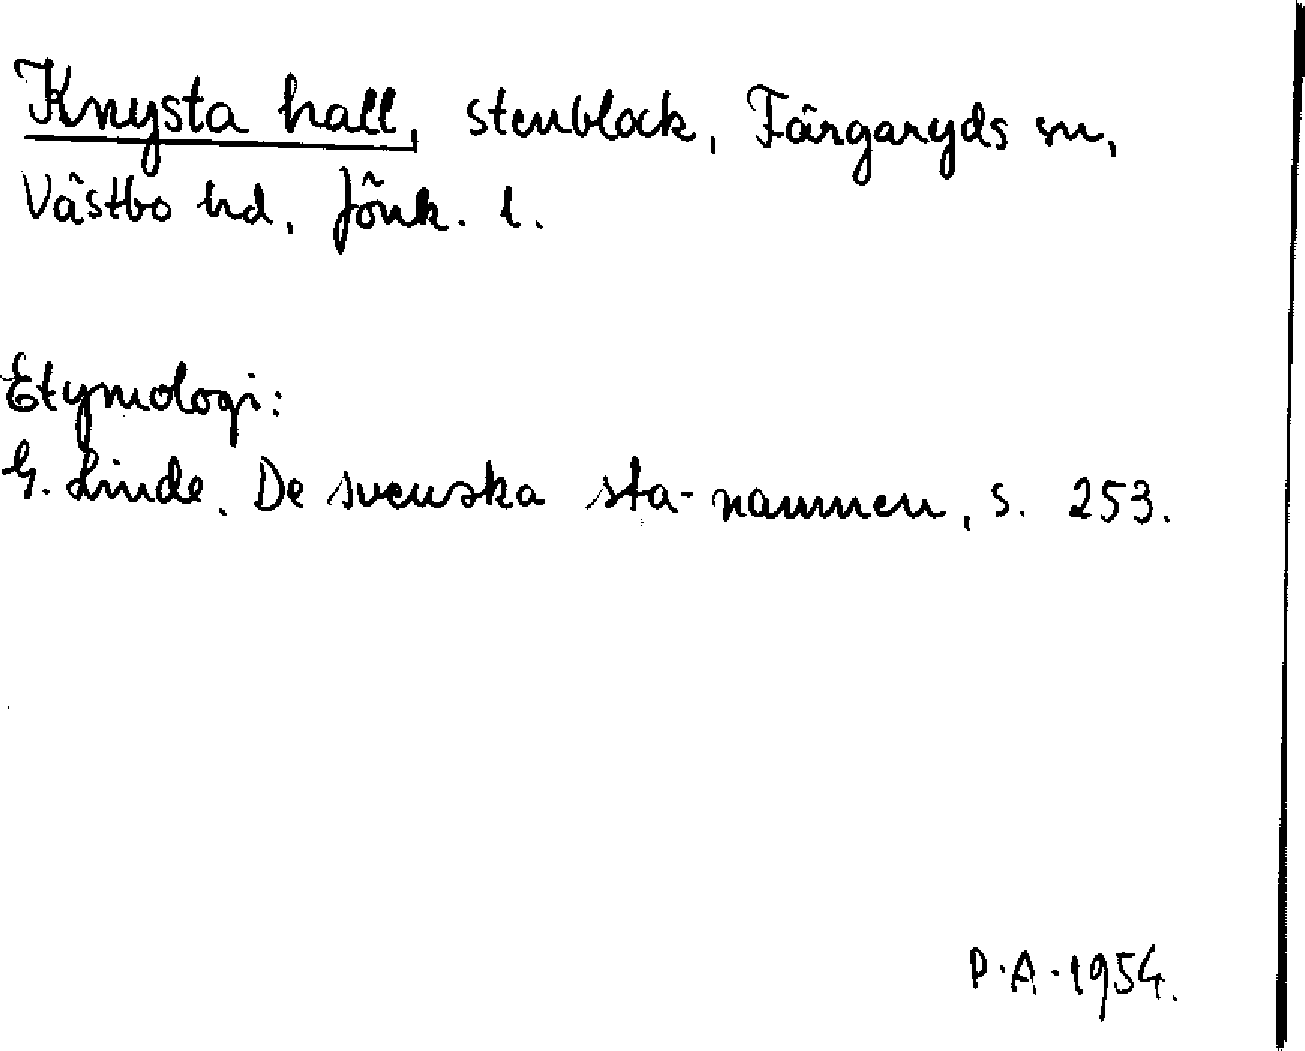 Knysta hall, stenblock, Färgaryds sn,
Västbo hd, Jönk. l.
Etymologi:
G. Linde. De svenska sta-namnen, s. 253.
P.A. 1954.